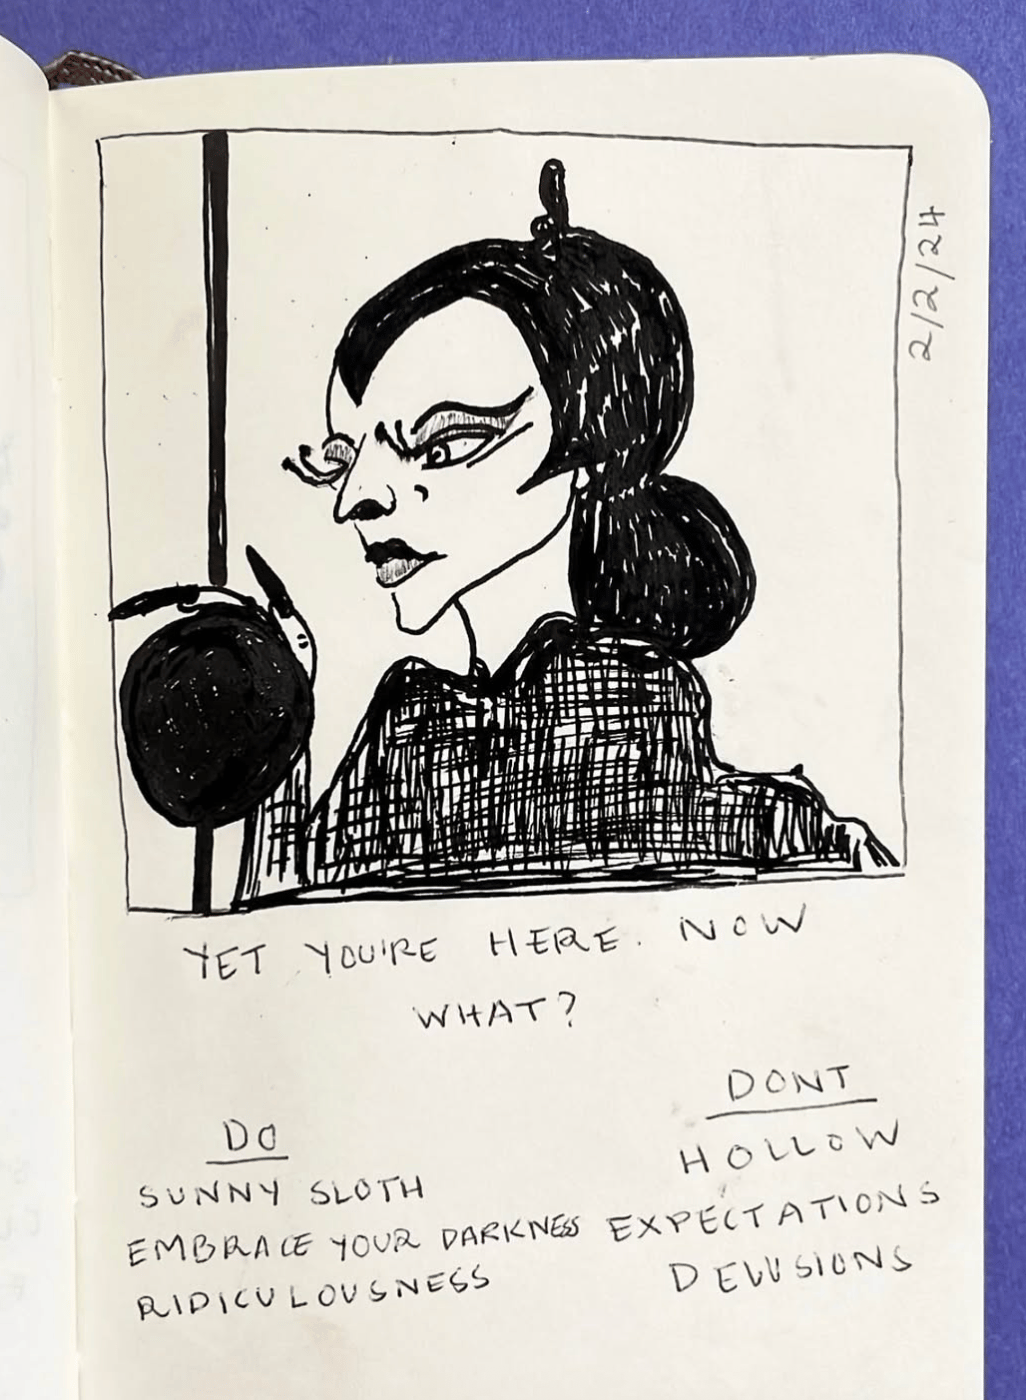 2/2/24
YET YOU'RE HERE. NOW
WHAT?
DO
SUNNY SLOTH
EMBRACE YOUR DARKNESS
RIDICULOUSNESS
DONT
HOLLOW
EXPECTATIONS
DELUSIONS